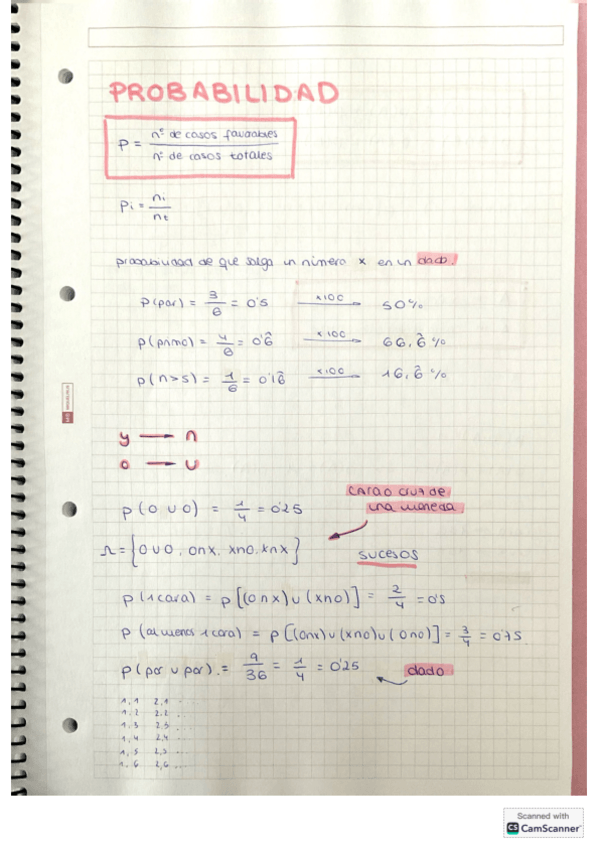 PROBABILIDAD
P = nº de casos favorables / nº de casos totales
Pi = ni / nt
probabilidad de que salga un número x en un dado.
P(par) = 3/6 = 0'5 x100 → 50%
p(primo) = 4/6 = 0'6̂ x100 → 66,6̂ %
p(n>5) = 1/6 = 0'16̂ x100 → 16,6̂ %
y → ∩
o → ∪
cara o cruz de
una moneda
p(O ∪ O) = 1/4 = 0'25
Ω = {O∪O, O∩X, X∩O, X∩X}
sucesos
p(1 cara) = p[(O∩X)∪(X∩O)] = 2/4 = 0'5
p(al menos 1 cara) = p[(O∩X)∪(X∩O)∪(O∩O)] = 3/4 = 0'75
p(par ∪ par) = 9/36 = 1/4 = 0'25
dado
1,1 2,1 ...
1,2 2,2 ...
1,3 2,3 ...
1,4 2,4 ...
1,5 2,5 ...
1,6 2,6 ...
Scanned with
CS CamScanner